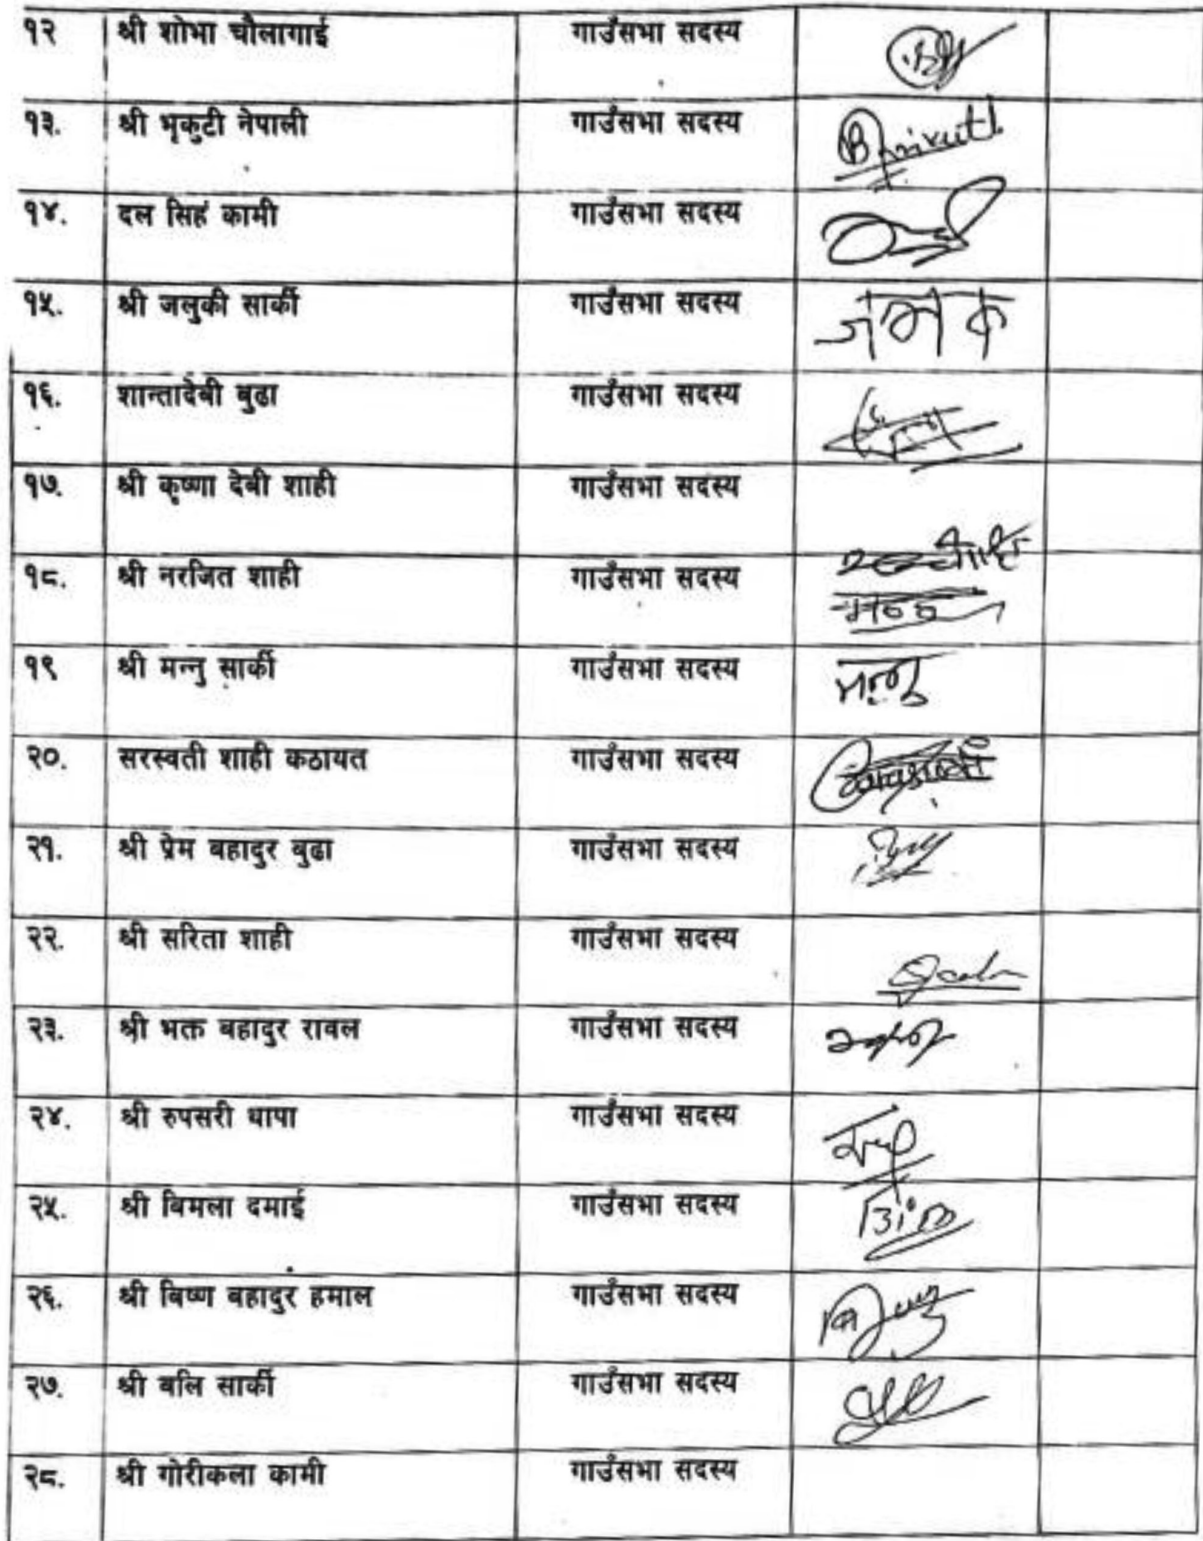 १२ श्री शोभा चौलागाई गाउँसभा सदस्य
१३. श्री भृकुटी नेपाली गाउँसभा सदस्य
१४. दल सिहं कामी गाउँसभा सदस्य
१५. श्री जलुकी सार्की गाउँसभा सदस्य
१६. शान्तादेबी बुढा गाउँसभा सदस्य
१७. श्री कृष्णा देबी शाही गाउँसभा सदस्य
१८. श्री नरजित शाही गाउँसभा सदस्य
१९ श्री मन्नु सार्की गाउँसभा सदस्य मन्नु
२०. सरस्वती शाही कठायत गाउँसभा सदस्य
२१. श्री प्रेम बहादुर बुढा गाउँसभा सदस्य
२२. श्री सरिता शाही गाउँसभा सदस्य
२३. श्री भक्त बहादुर रावल गाउँसभा सदस्य
२४. श्री रुपसरी थापा गाउँसभा सदस्य
२५. श्री बिमला दमाई गाउँसभा सदस्य
२६. श्री बिष्ण बहादुर हमाल गाउँसभा सदस्य
२७. श्री बलि सार्की गाउँसभा सदस्य
२८. श्री गोरीकला कामी गाउँसभा सदस्य